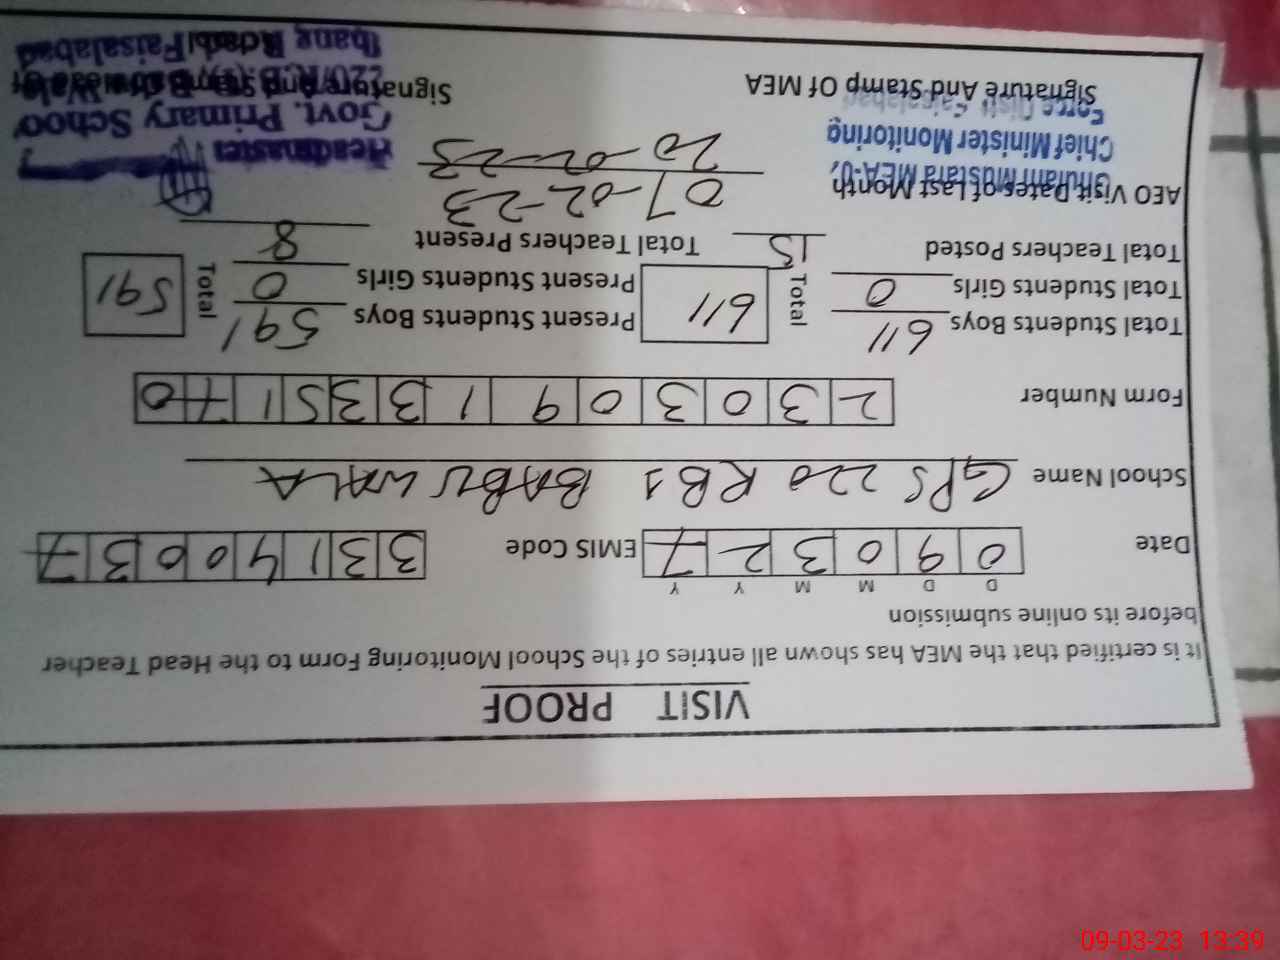 VISIT PROOF
It is certified that the MEA has shown all entries of the School Monitoring Form to the Head Teacher
before its online submission
D D M M Y Y
Date 0 9 0 3 2 7 EMIS Code 3 3 1 4 0 0 3 7
School Name GPS 220 RB 1 BABU WALA
Form Number 2 3 0 3 0 9 1 3 3 5 1 7 0
Total Students Boys 611 Total 611 Present Students Boys 591 Total 591
Total Students Girls 0 Present Students Girls 0
Total Teachers Posted 15 Total Teachers Present 8
AEO Visit Dates of Last Month 07-02-23
20-02-23
Ghulam Mustafa MEA-
Chief Minister Monitoring
Force Distt: Faisalabad
Signature And Stamp Of MEA
Headmaster
Govt. Primary School
220/R.B.
Jhang Road, Faisalabad
Signature And Stamp
09-03-23 13:39